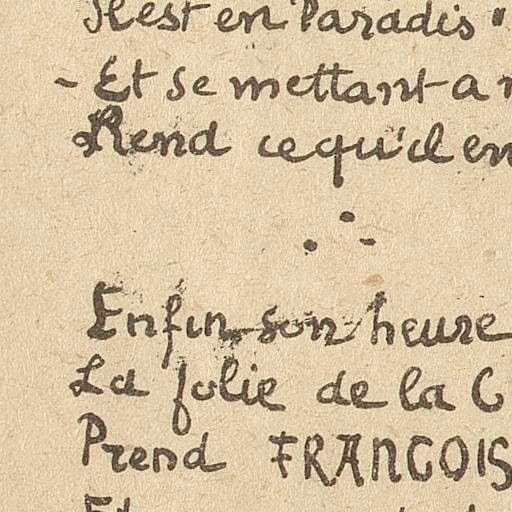 Il est en Paradis"
- Et se mettant a
Rend ce qu'il en
Enfin son heure
La folie de la C
Prend FRANCOIS
Et